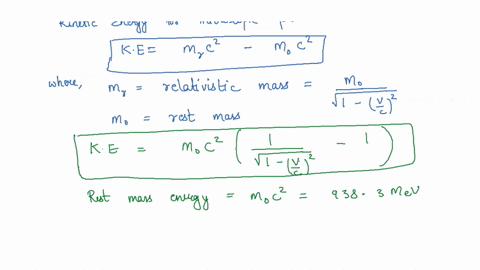 Kinetic Energy
K.E = mᵣc² - m₀c²
where, mᵣ = relativistic mass = m₀ / √(1 - (v/c)²)
m₀ = rest mass
K.E = m₀c² ( 1 / √(1 - (v/c)²) - 1 )
Rest mass energy = m₀c² = 938.3 MeV